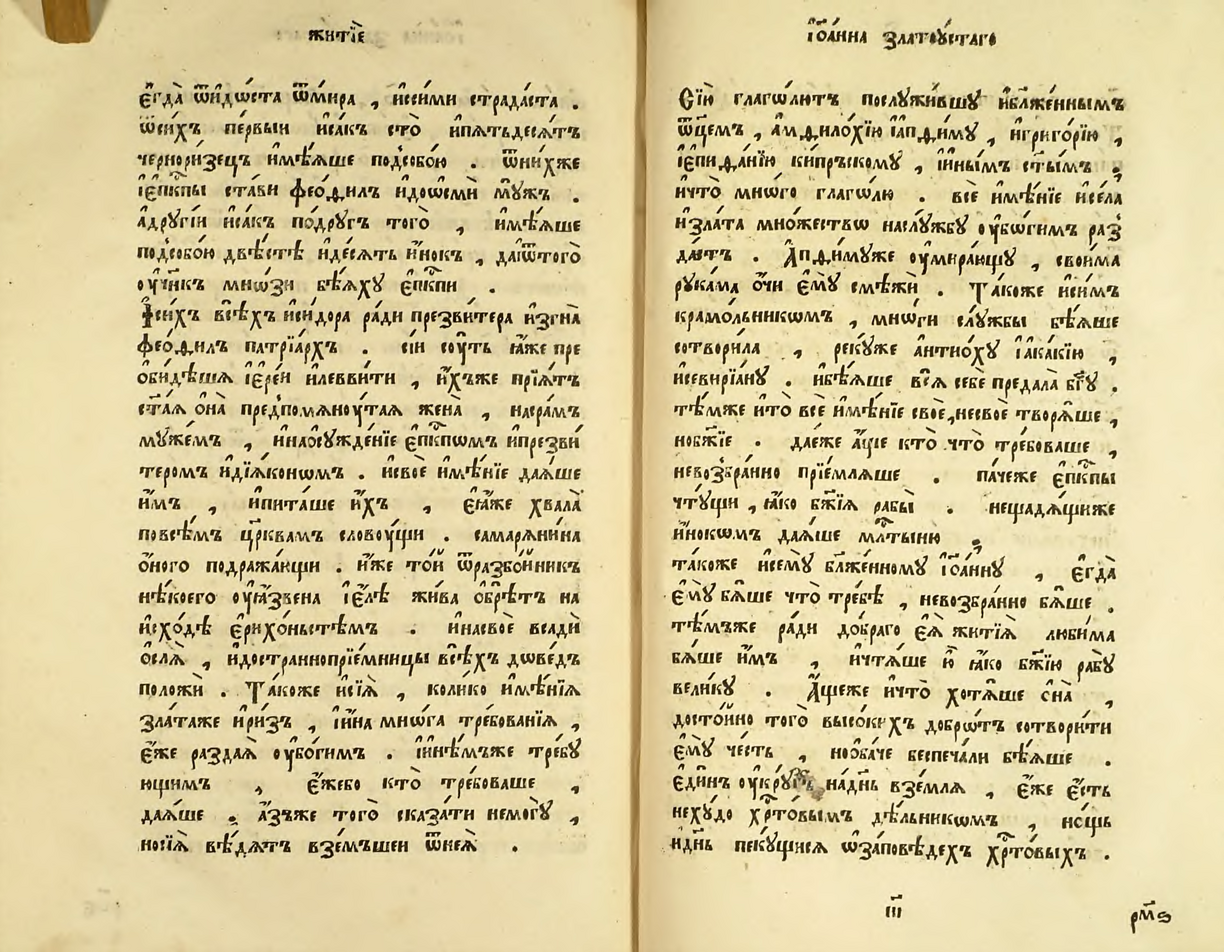 житїе
є҆гда̀ ѿи́дѡста ѿми́ра , и҆сси́ми страда́ста .
ѿси́хъ пе́рвыи и҆са́къ сто̀ и҆пѧтьдесѧ́тъ
черно́ри́зецъ и҆мѣ́ѧше подсобо́ю . ѿни́хже
і҆є҆пⷭ҇кпы ста́ви фео́филъ и҆до́ѡсмѝ мꙋ́жъ .
а҆дрꙋгі́и и҆са́къ по́дрꙋгъ того̀ , и҆мѣ́ѧше
подсобо́ю двѣ́стѣ и҆де́сѧть и҆́нокъ , даи҆ѿтого̀
оу҆чн҃къ мно́ѕи бѣ́ѧхꙋ є҆пⷭ҇кпи .
І҆си́хъ всѣ́хъ и҆си́дора ра́ди презви́тера и҆згна̀
фео́филъ патрїа́рхъ . сі́и сꙋ́ть ꙗ҆́же пре
ѻ҆би́дѣшѧ і҆ере́и и҆левви́ти , и҆́хъже прїѧ́тъ
ст҃а́ѧ ѻ҆на̀ предпомѧноу́таѧ жена̀ , насра́мъ
мꙋже́мъ , и҆наѡсꙋжде́нїе є҆пⷭ҇кпѡмъ и҆презви́
теромъ и҆дїѧ́конѡмъ . и҆своѐ и҆мѣ́нїе даѧ́ше
и҆́мъ , и҆пита́ше и҆́хъ , є҆ѧ́же хвала̀
повсѣ́мъ цр҃квамъ словоу́щи . самарѧни́на
ѻ҆́ного подража́ющи . и҆́же то́й ѿразбо́йникъ
нѣ́коего оу҆ѧ́звена і҆є҆лѣ̀ жи́ва ѻ҆брѣ́тъ на
и҆схо́дѣ є҆рихо́ньстѣмъ . и҆насвоѐ всадѝ
ѻ҆слѧ̀ , и҆достраннопрїе́мницы всѣ́хъ довед̾
положѝ . Та́коже и҆сїѧ̀ , коли́ко и҆мѣ́нїѧ
зла́таже и҆ри́зъ , і҆и҆́на мно́га тре́бованїѧ ,
є҆́же раздаѧ̀ оу҆бо́гимъ . і҆и҆нѣ́мъже тре́бꙋ
ющимъ , є҆́жебо кто̀ тре́боваше ,
даѧ́ше . а҆́зъже того̀ сказа́ти немогꙋ̀ ,
носїѧ̀ вѣ́дѧтъ взе́мъшеи ѿнеѧ̀ .
і҆ѡа́нна златоу́стаго
Сїю̀ глаго́лютъ послꙋжи́вшꙋ и҆блаже́ннымъ
ѿце́мъ , а҆мфило́хїю і҆а҆пфи́мꙋ , и҆григо́рїю ,
і҆є҆пифа́нїю ки́прьскомꙋ , і҆и҆ны́мъ ст҃ы́мъ .
и҆что̀ мно́го глаго́лю . всѐ и҆мѣ́нїе и҆се́ла
и҆зла́та мно́жествѡ наслꙋ́жбꙋ оу҆бо́гимъ раз̾
да́ѧтъ . А҆пфи́мꙋже оу҆мира́ющꙋ , свои́ма
рꙋка́ма ѻ҆́чи є҆мꙋ̀ смѣжѝ . Та́коже и҆си́мъ
крамо́льникѡмъ , мно́ги слꙋ́жбы бѣ́ѧше
сотвори́ла , рекꙋ́же а҆нтио́хꙋ і҆а҆ка́кїю ,
и҆севирїа́нꙋ . и҆бѣ́ѧше всѧ̀ себѐ предала̀ бг҃ꙋ .
тѣ́мже и҆то̀ всѐ и҆мѣ́нїе своѐ,несвоѐ творѧ́ше ,
нобж҃їе . дае́же а҆́ще кто̀ что̀ тре́боваше ,
невозбра́нно прїе́млѧше . па́чеже є҆пⷭ҇кпы
чтꙋ́щи , ꙗ҆́ко бж҃їѧ рабы̀ . нещадѧ́щиже
и҆́нокѡмъ даѧ́ше млⷭ҇тыню .
та́коже и҆семꙋ̀ бл҃же́нномꙋ і҆ѡа́ннꙋ , є҆гда̀
є҆мꙋ̀ бѧ́ше что̀ тре́бѣ , невозбра́нно бѧ́ше .
тѣ́мъже ра́ди до́браго є҆ѧ̀ житїѧ̀ люби́ма
бѧ́ше и҆́мъ , и҆чтѧ́ше ю҆̀ ꙗ҆́ко бж҃їю рабꙋ̀
вели́кꙋ . А҆́щеже и҆что̀ хотѧ́ше сїа̀ ,
досто́йно того̀ высо́кихъ добро́тъ сотвори́ти
є҆мꙋ̀ че́сть , ноѻ҆ба́че беспеча́ли бѣ́ѧше .
є҆ди́нъ оу҆крꙋ́хъ на́дн҃ь взе́млѧ , є҆́же є҆́сть
нехꙋ́до хрⷭ҇то́вымъ дѣ́льникѡмъ , но́щь
и҆дн҃ь пекꙋ́щисѧ ѡ҆за́повѣдехъ хрⷭ҇то́выхъ .
рм҃ѕ